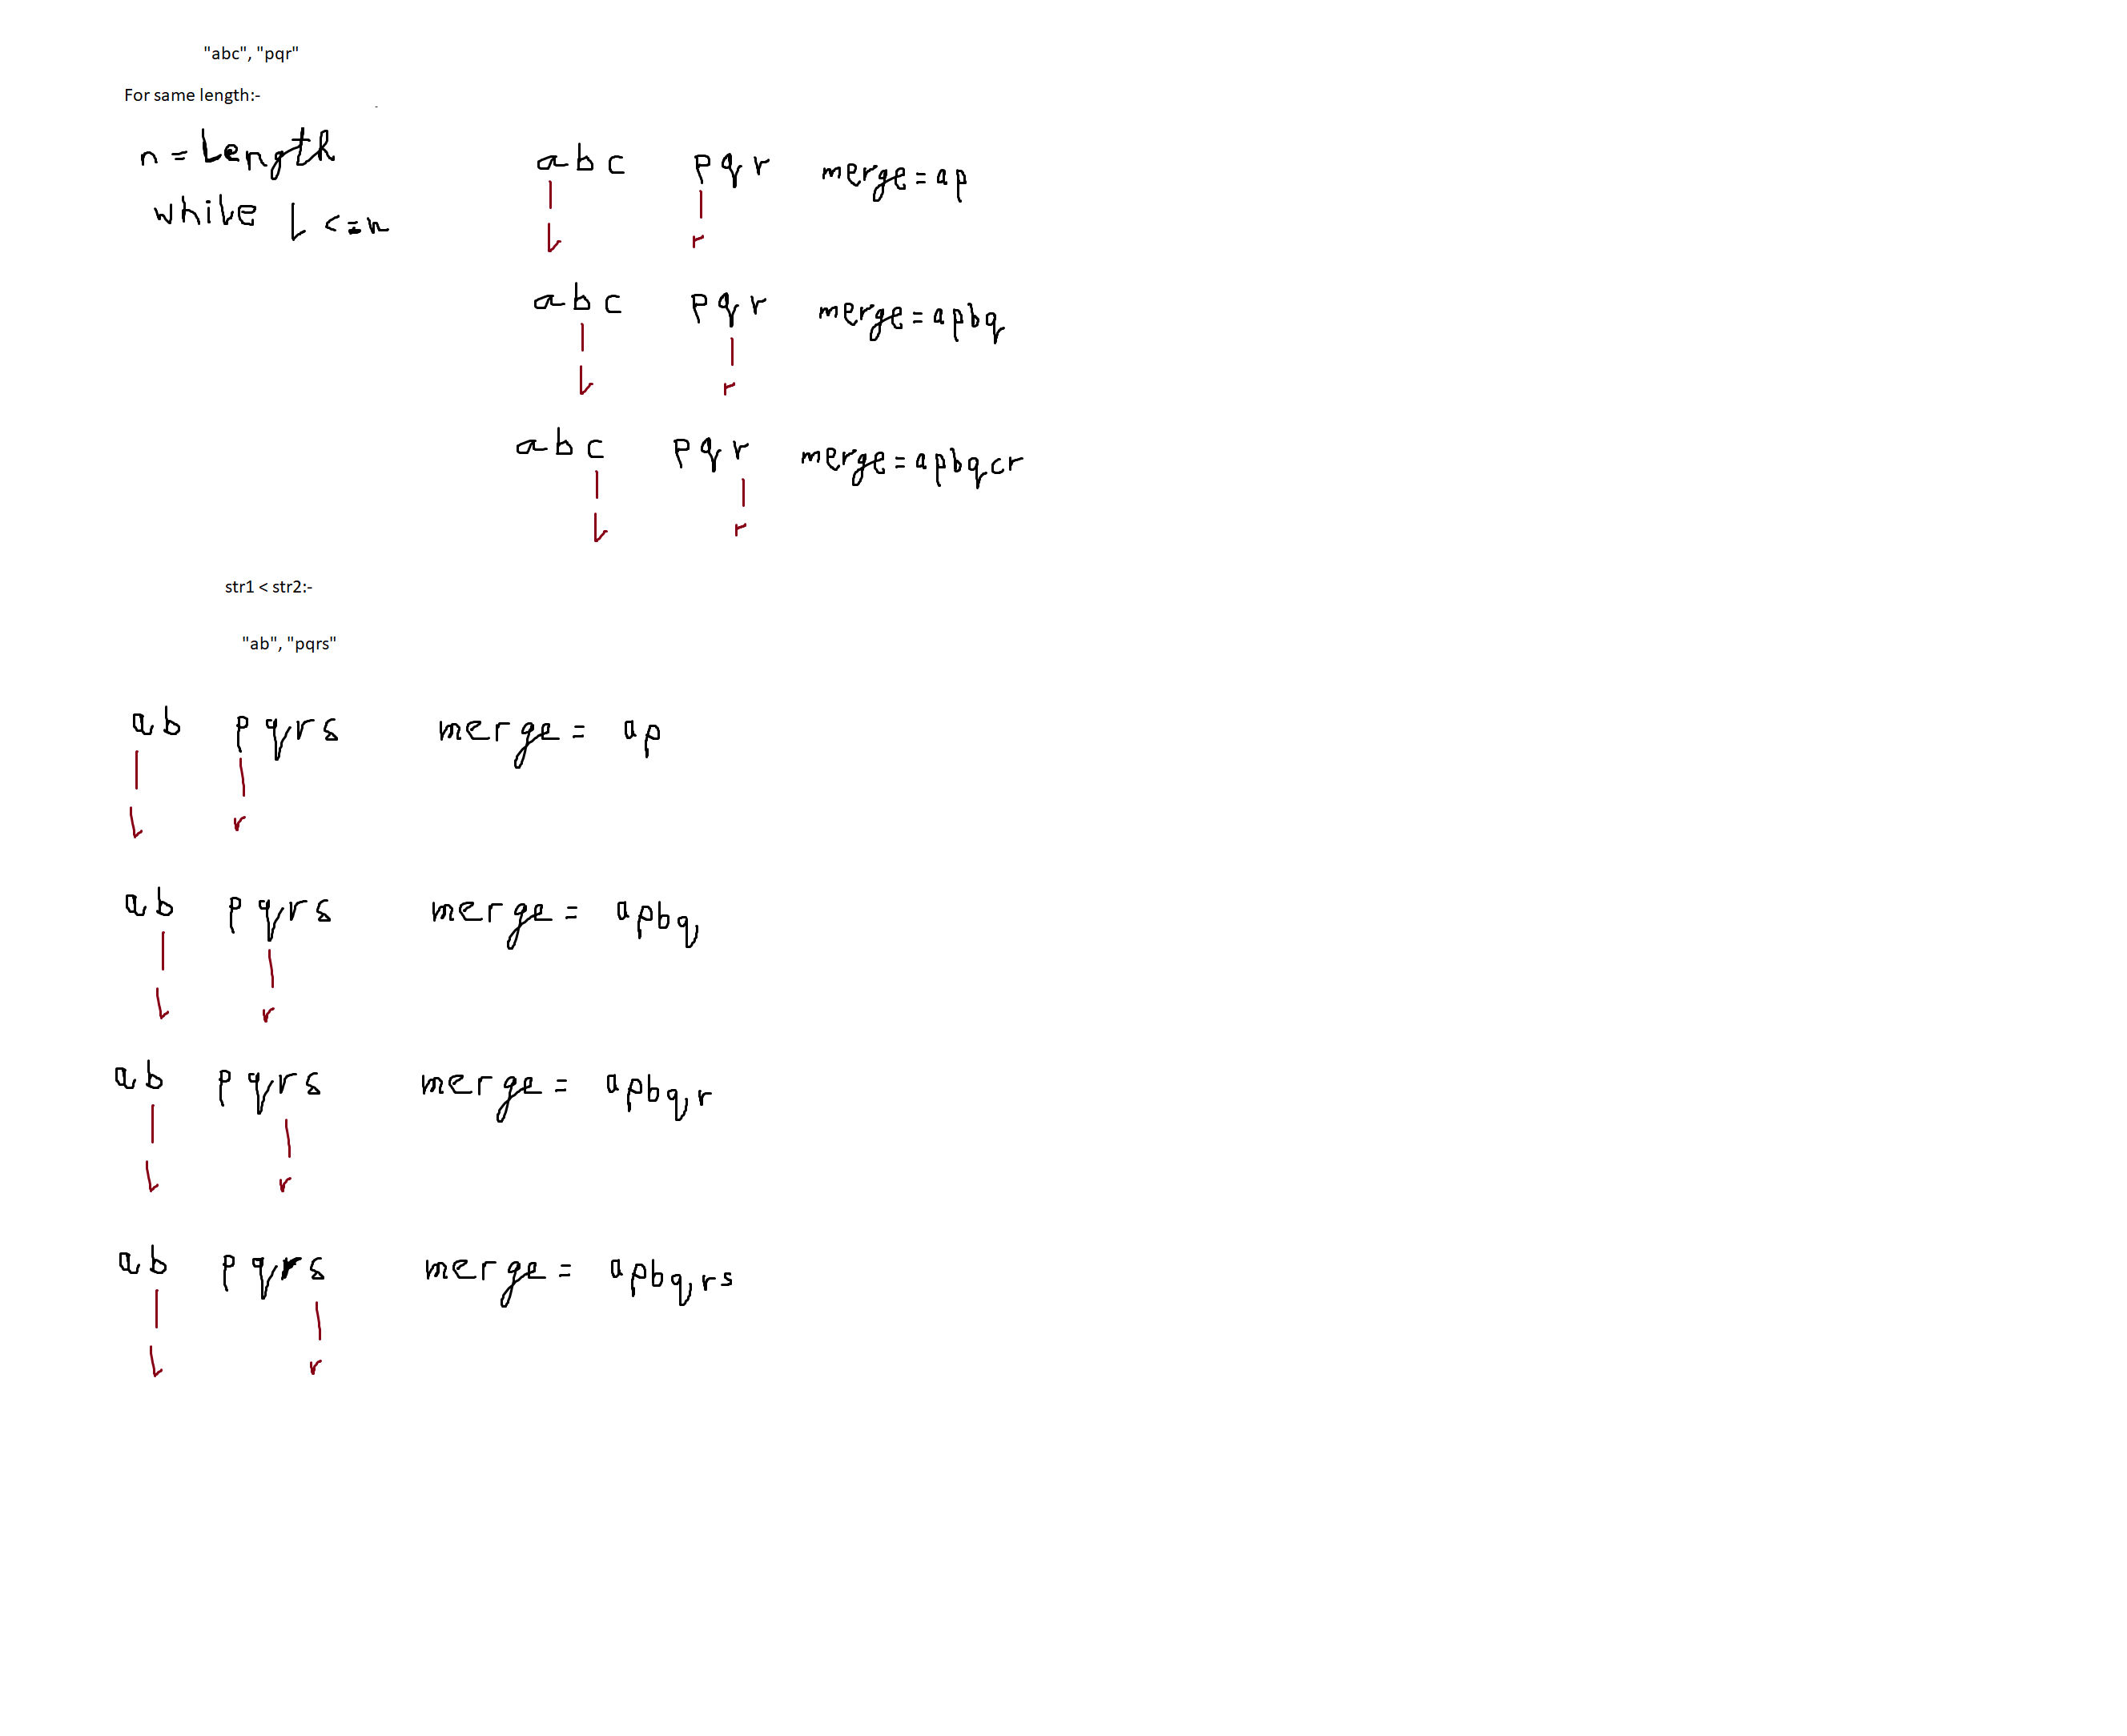 "abc", "pqr"
For same length:-
n = Length
while L <= n
abc pqr merge = ap
L r
abc pqr merge = apbq
L r
abc pqr merge = apbqcr
L r
str1 < str2:-
"ab", "pqrs"
ab pqrs merge = ap
L r
ab pqrs merge = apbq
L r
ab pqrs merge = apbqr
L r
ab pqrs merge = apbqrs
L r